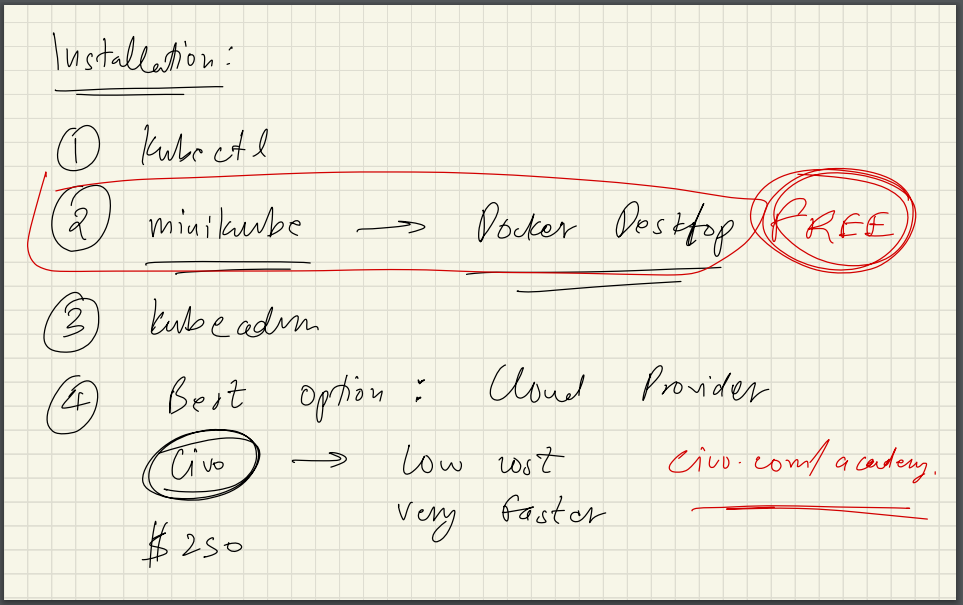 Installation:
1 kubectl
2 minikube → Docker Desktop FREE
3 kubeadm
4 Best option: Cloud Provider
Civo → Low cost civo.com/academy.
very faster
$250